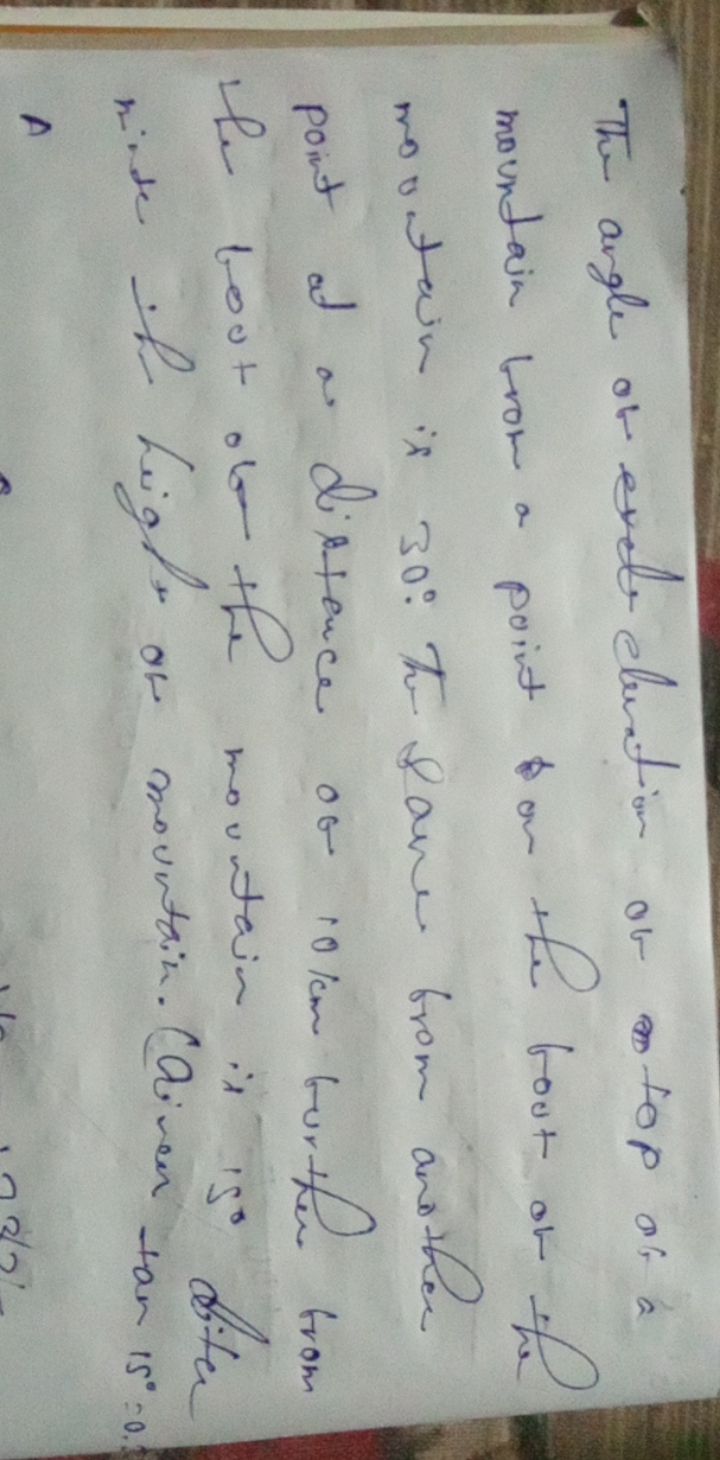 The angle of elevation of top of a
mountain from a point on the foot of the
mountain is 30°. The same from another
point at a distance of 10km further from
the foot of the mountain is 15°
the height of mountain. (Given tan 15° = 0.
A